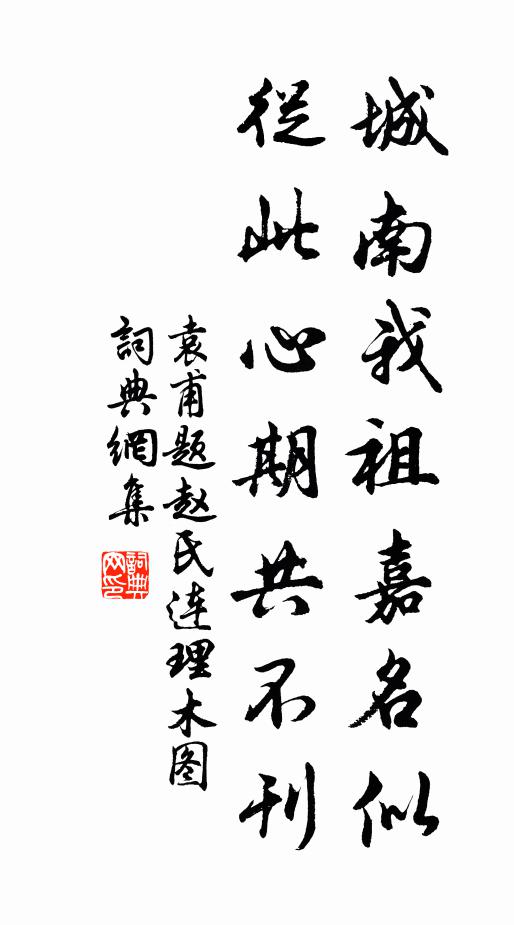 城南我祖嘉名似
從此心期共不刊
袁甫题赵氏连理木图
詞典網集
詞典網印